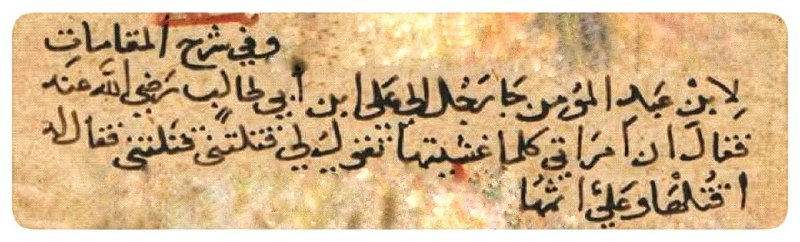 وفي شرح المقامات
لابن عبد المؤمن جا رجل الى على ابن أبي طالب رضي الله عنه
فقال ان امراتي كلما غشيتها تقول لي قتلتني قتلتني فقال له
اقتلها وعلي اثمها